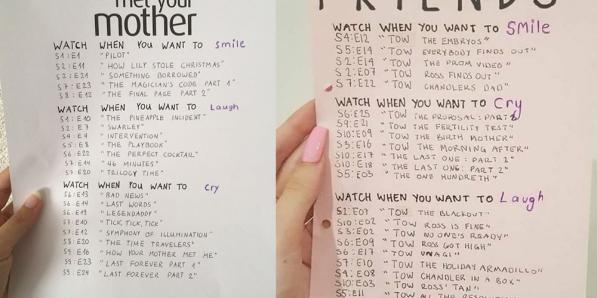 met your
mother
WATCH WHEN YOU WANT TO Smile
S1:E1 "PILOT"
S2:E11 "HOW LILY STOLE CHRISTMAS"
S2:E21 "SOMETHING BORROWED"
S7:E23 "THE MAGICIAN'S CODE PART 1"
S8:E12 "THE FINAL PAGE PART 2"
WATCH WHEN YOU WANT TO Laugh
S1:E10 "THE PINEAPPLE INCIDENT"
S2:E7 "SWARLEY"
S4:E4 "INTERVENTION"
S5:E8 "THE PLAYBOOK"
S6:E22 "THE PERFECT COCKTAIL"
S7:E14 "46 MINUTES"
S7:E20 "TRILOGY TIME"
WATCH WHEN YOU WANT TO Cry
S6:E13 "BAD NEWS"
S6:E14 "LAST WORDS"
S6:E19 "LEGENDADDY"
S7:E10 "TICK, TICK, TICK"
S7:E12 "SYMPHONY OF ILLUMINATION"
S8:E20 "THE TIME TRAVELERS"
S9:E16 "HOW YOUR MOTHER MET ME"
S9:E23 "LAST FOREVER PART 1"
S9:E24 "LAST FOREVER PART 2"
FRIENDS
WATCH WHEN YOU WANT TO Smile
S4:E12 "TOW THE EMBRYOS"
S5:E14 "TOW EVERYBODY FINDS OUT"
S2:E14 "TOW THE PROM VIDEO"
S2:E07 "TOW ROSS FINDS OUT"
S7:E22 "TOW CHANDLERS DAD"
WATCH WHEN YOU WANT TO Cry
S6:E25 "TOW THE PROPOSAL: PART 2"
S9:E21 "TOW THE FERTILITY TEST"
S10:E09 "TOW THE BIRTH MOTHER"
S3:E16 "TOW THE MORNING AFTER"
S10:E17 "THE LAST ONE: PART 1"
S10:E18 "THE LAST ONE: PART 2"
S5:E03 "THE ONE HUNDRETH"
WATCH WHEN YOU WANT TO Laugh
S1:E07 "TOW THE BLACKOUT"
S10:E02 "TOW ROSS IS FINE"
S3:E02 "TOW NO ONE'S READY"
S6:E09 "TOW ROSS GOT HIGH"
S6:E17 "TOW UNAGI"
S7:E10 "TOW THE HOLIDAY ARMADILLO"
S4:E08 "TOW CHANDLER IN A BOX"
S10:E03 "TOW ROSS' TAN"
S5:E11 "TOW ALL THE